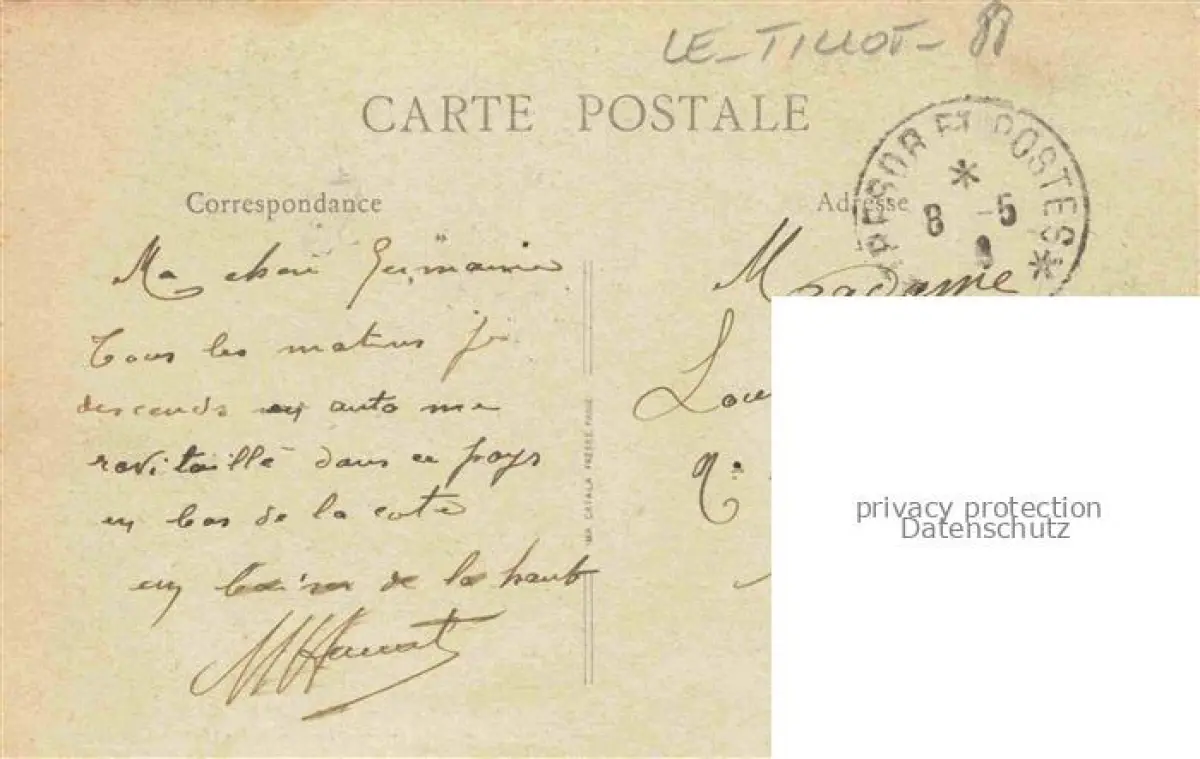 LE-TILLOT- 88
CARTE POSTALE
TRESOR ET POSTES
8 -5
Correspondance
Adresse
Ma chère Germaine
Tous les matins je
descends en auto me
ravitaillé dans ce pays
en bas de la cote
un baiser de la haut
Madame
IMP. CATALA FRERES PARIS
privacy protection
Datenschutz